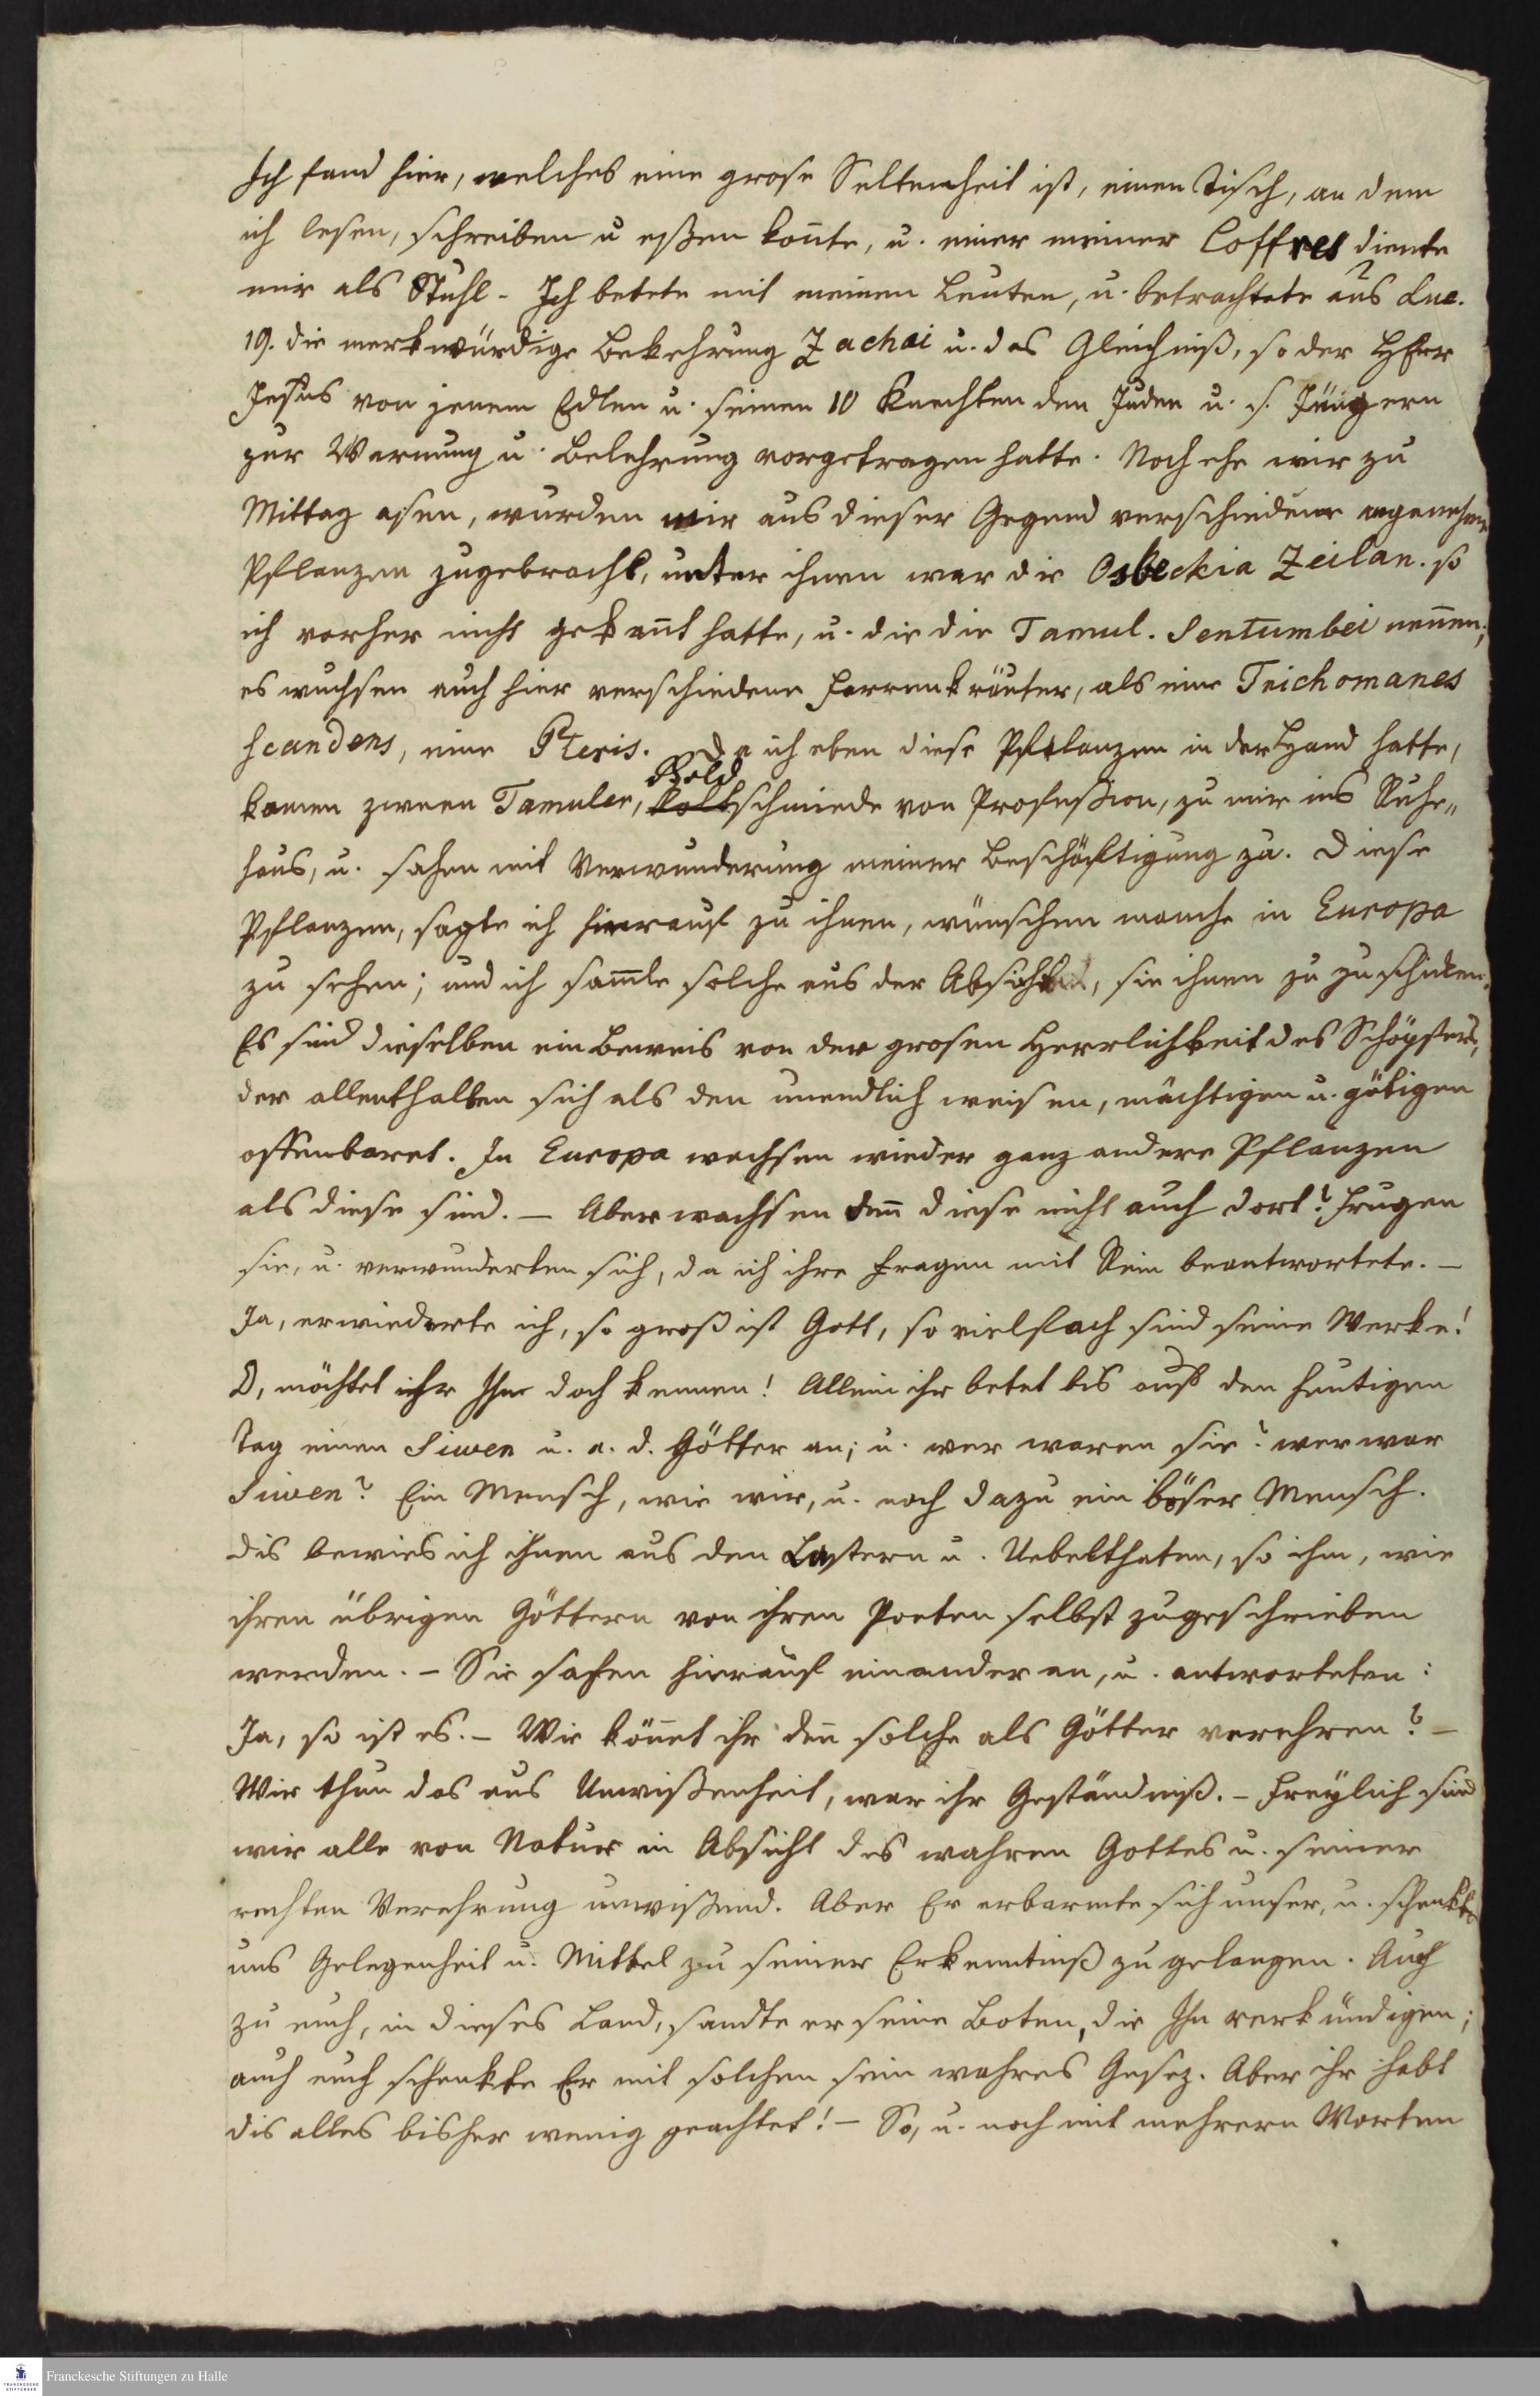 Ich fand hier, welches eine grose Seltenheit ist, einen Tisch, an dem
ich lesen, schreiben u eßen kon̄te, u. einer meiner Coffres diente
mir als Stuhl. Ich betete mit meinen Leuten, u. betrachtete aus Luc.
19. die merkwürdige Bekehrung Zachai u. das Gleichniß, so der HErr
Jesus von jenem Edlen u. seinen 10 Knechten den Juden u. s. Jüngern
zur Warnung u. Belehrung vorgetragen hatte. Noch ehe wir zu
Mittag asen, wurden mir aus dieser Gegend verschiedene angenehme
Pflanzen zugebracht, unter ihnen war die Osbeckia Zeilan. so
ich vorher nicht gekan̄t hatte, u. die die Tamul. Sentumbei nen̄en;
es wuchsen auch hier verschiedene Farrenkräuter, als eine Trichomanes
scandens, eine Pteris. Da ich eben diese Pflanzen in der Hand hatte,
kamen zween Tamuler, Goldschmiede von Profeßion, zu mir ins Ruhe„
haus, u. sahen mit Verwunderung meiner Beschäftigung zu. Diese
Pflanzen, sagte ich hierauf zu ihnen, wünschen manche in Europa
zu sehen; und ich sam̄le solche aus der Absicht, sie ihnen zu zu schicken.
Es sind dieselben ein Beweis von der grosen Herrlichkeit des Schöpfers,
der allenthalben sich als den unendlich weisen, mächtigen u. gütigen
offenbaret. In Europa wachsen wieder ganz andere Pflanzen
als diese sind. – Aber wachsen den̄ diese nicht auch dort? frugen
sie, u. verwunderten sich, da ich ihre Fragen mit Nein beantwortete. –
Ja, erwiederte ich, so groß ist Gott, so vielfach sind seine Werke!
O, möchtet ihr Ihn doch kennen! Allein ihr betet bis auf den heutigen
Tag einen Siwen u. a. d. Götter an; u. wer waren sie? wer war
Siwen? Ein Mensch, wie wir, u. noch dazu ein böser Mensch.
Dis bewies ich ihnen aus den Lastern u. Uebelthaten, so ihm, wie
ihren übrigen Göttern von ihren Poeten selbst zugeschrieben
werden. – Sie sahen hierauf einander an, u. antworteten:
Ja, so ist es. – Wie kön̄et ihr den̄ solche als Götter verehren? –
Wir thun das aus Unwißenheit, war ihr Geständniß. – Freylich sind
wir alle von Natur in Absicht des wahren Gottes u. seiner
rechten Verehrung unwißend. Aber Er erbarmte sich unser, u. schenkte
uns Gelegenheit u. Mittel zu seiner Erkenntniß zu gelangen. Auch
zu euch, in dieses Land, sandte er seine Boten, die Ihn verkündigen;
auch euch schenkte Er mit solchen sein wahres Gesez. Aber ihr habt
dis alles bisher wenig geachtet! – So, u. noch mit mehrern Worten
Franckesche Stiftungen zu Halle